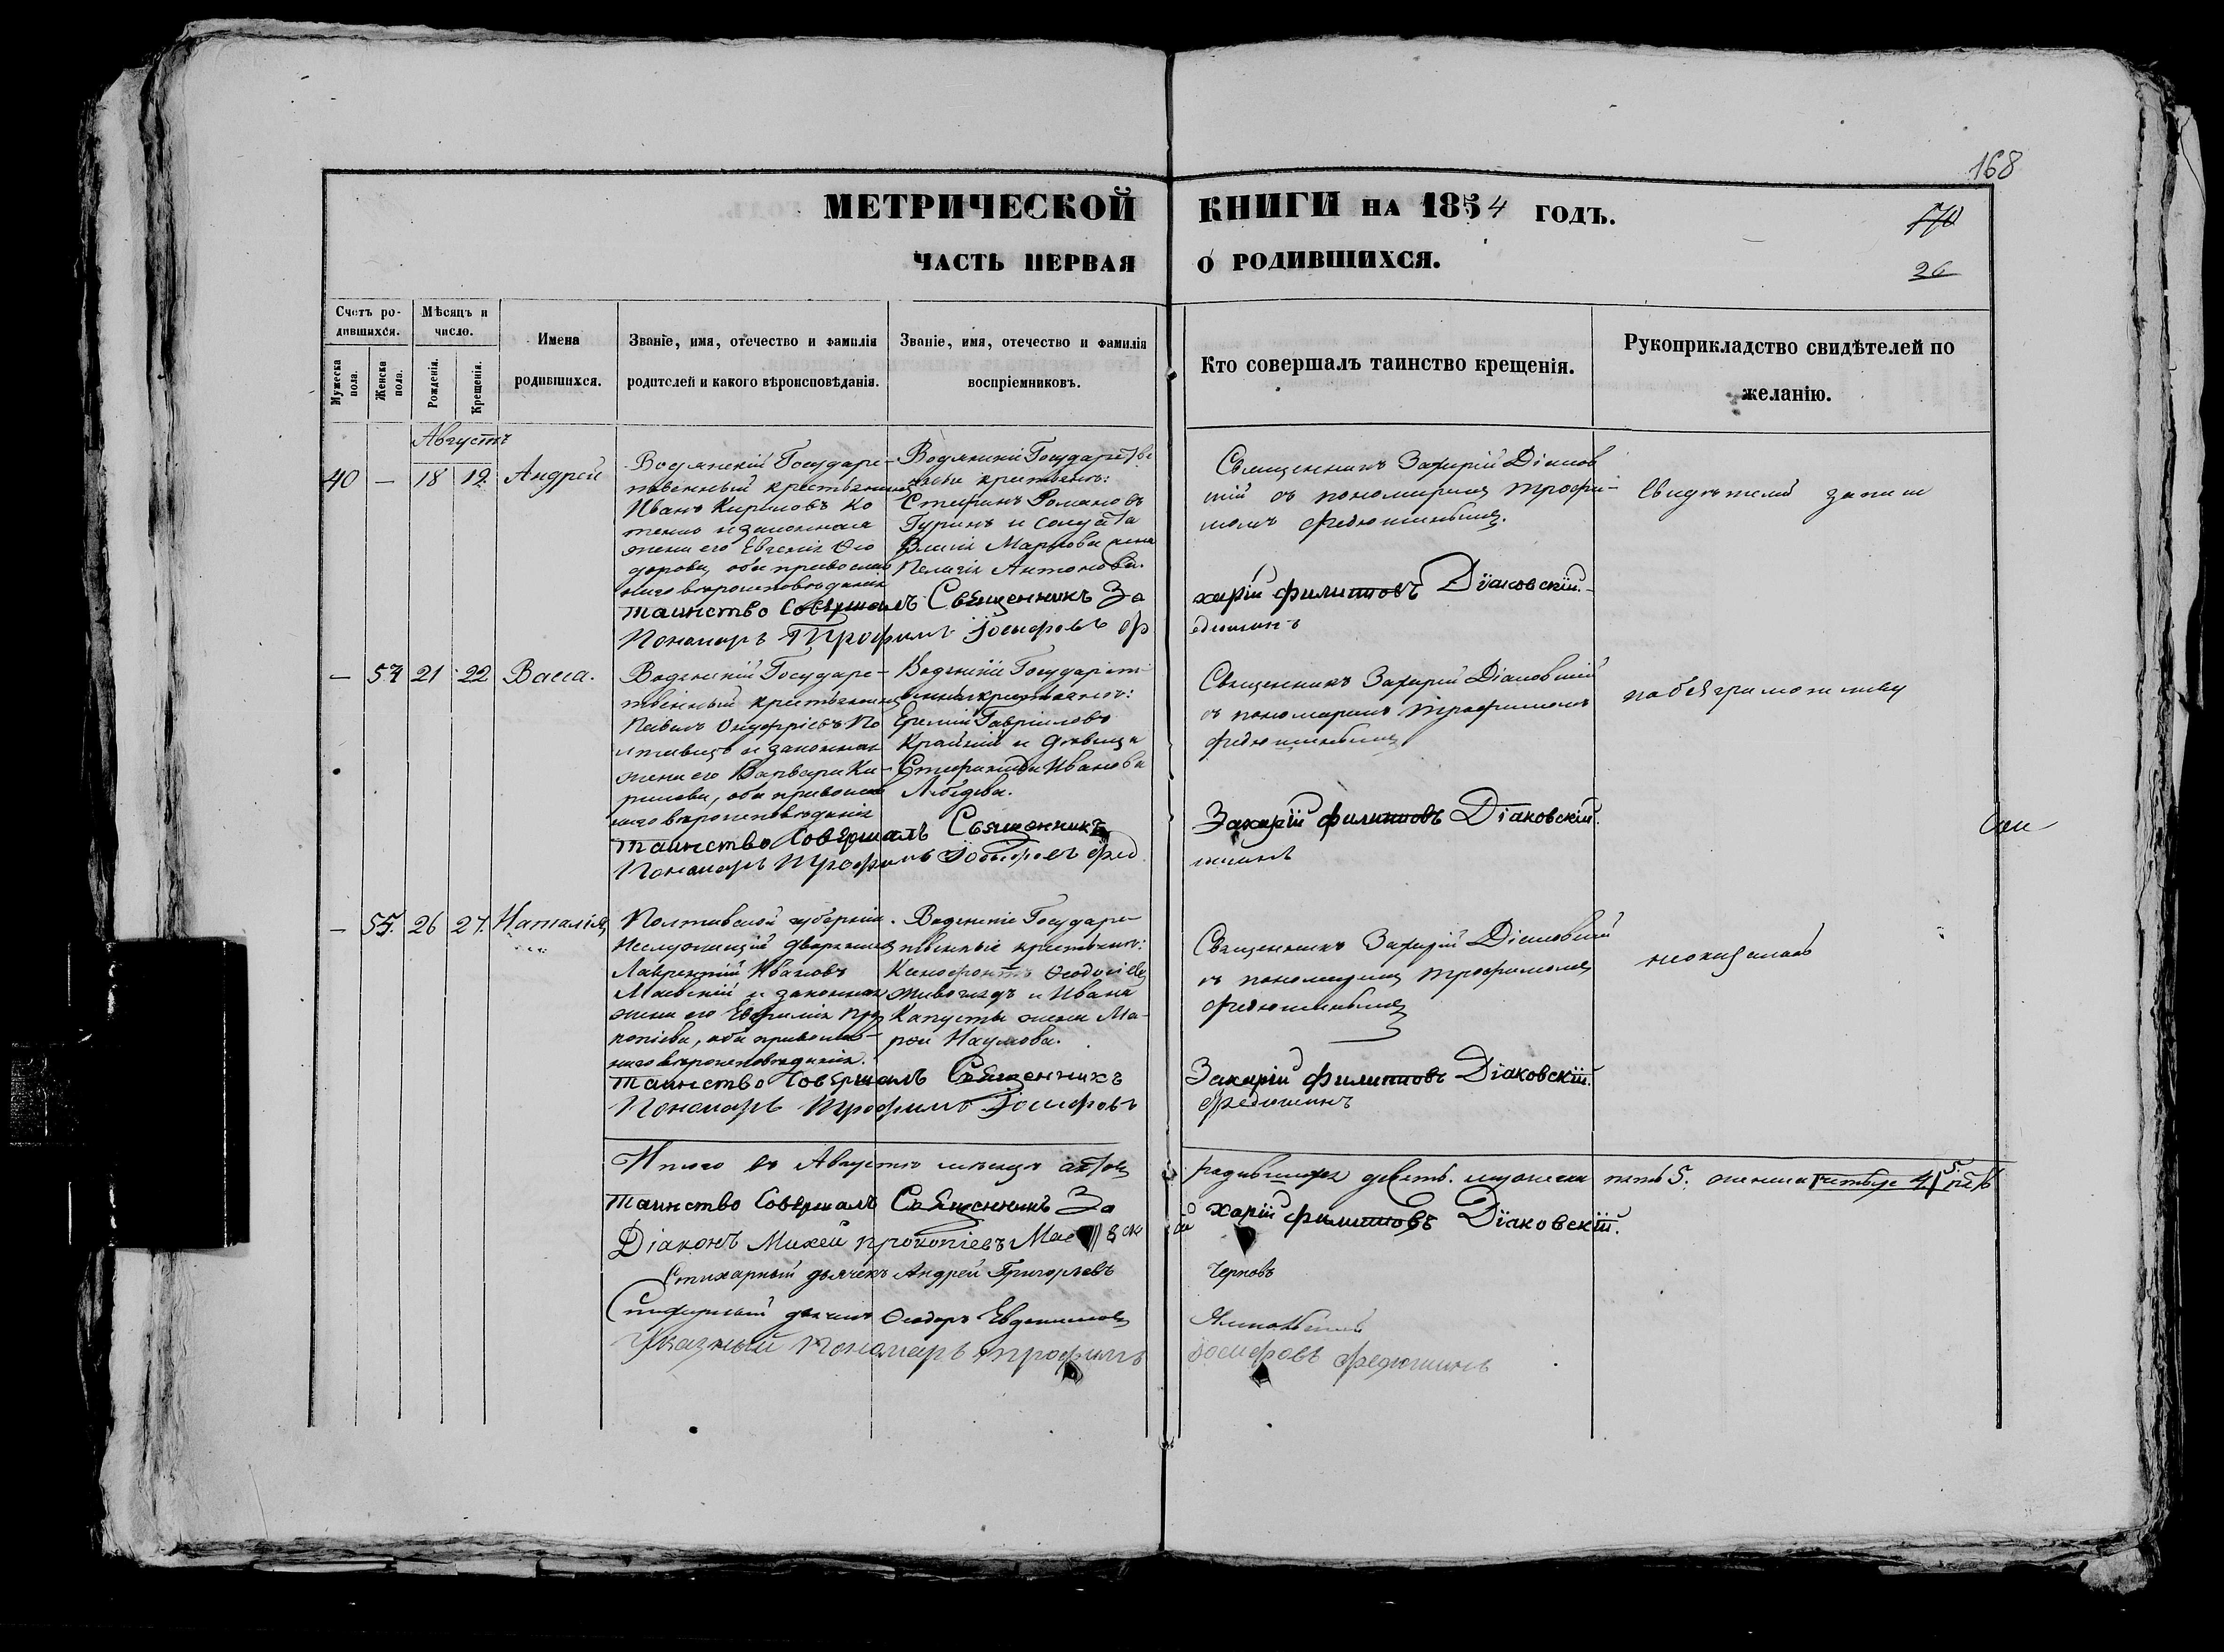 168
МЕТРИЧЕСКОЙ КНИГИ НА 1854 ГОДЪ.
170
ЧАСТЬ ПЕРВАЯ О РОДИВШИХСЯ.
26
Счетъ ро-
дившихся.
Мужеска пола.
Женска пола.
Мѣсяцъ и
число.
Рожденія.
Крещенія.
Имена
родившихся.
Званіе, имя, отечество и фамилія
родителей и какого вѣроисповѣданія.
Званіе, имя, отечество и фамилія
воспріемниковъ.
Кто совершалъ таинство крещенія.
Рукоприкладство свидѣтелей по
желанію.
Августъ
40 — 18 19 Андрей
Водянскій Государс-
твенный крестьянинъ
Иванъ Кириловъ Ко
тенко и законная
жена его Евгенія Ѳео
дорова, оба православ
наго вѣроисповѣданія
Водянскіе Государстве
нные крестьяне:
Стефанъ Романовъ
Гуринъ и солдата
Маркова жена
Пелагія Антонова.
Священникъ Захарій Діаков
скій съ пономаремъ Трофи-
момъ Федюшинымъ.
Свидѣтелей записи
Таинство совершалъ Священникъ За
харій Филиповъ Дїаковскїй.
Пономарь Трофимъ Іосифовъ Ф
едюшинъ
— 54 21 22 Васса.
Водянскій Государс-
твенный крестьянинъ
Павелъ Онуфріевъ По
лтавецъ и законная
жена его Варвара Ки-
рилова, оба православ
наго вѣроисповѣданія
Водянскіе Государст
венные крестьяне:
Еремій Гавріиловъ
Крайній и дѣвица
Стефанида Иванова
Лебедева.
Священникъ Захарій Діаковскій
съ пономаремъ Трофимомъ
Федюшинымъ
по безграмотству
Таинство совершалъ Священникъ
Захарїй Филиповъ Дїаковскїй.
Пономарь Трофимъ Іосифовъ Фед
юшинъ
— 55. 26 27. Наталія
Полтавской губерніи
Неслужащій дворянинъ
Лаврентій Ивановъ
Маевскій и законная
жена его Евфимія Про
копіева, оба православ-
наго вѣроисповѣданія.
Водянскіе Государс-
твенные крестьяне:
Ксенофонтъ Ѳеодосіевъ
Животядъ и Ивана
Капусты жена Ма-
рѳа Наумова.
Священникъ Захарій Діаковскій
съ пономаремъ Трофимомъ
Федюшинымъ
неоказалось
Таинство совершалъ Священникъ
Захарїй Филиповъ Дїаковскїй.
Пономарь Трофимъ Іосифовъ
Федюшинъ
Итого въ Августѣ мѣсяцѣ родившихся девять. мужеска пять 5. женска четыре 4 5 пять
Таинство совершалъ Священникъ За
харїй Филиповъ Дїаковскїй.
Діаконъ Михей Прокопіевъ
Стихарный дьячекъ Андрей Григорьевъ
Черновъ
Стихарный дьячекъ Ѳеодоръ Евдокимовъ
Указный Пономарь Трофимъ
Іосифовъ Федюшинъ